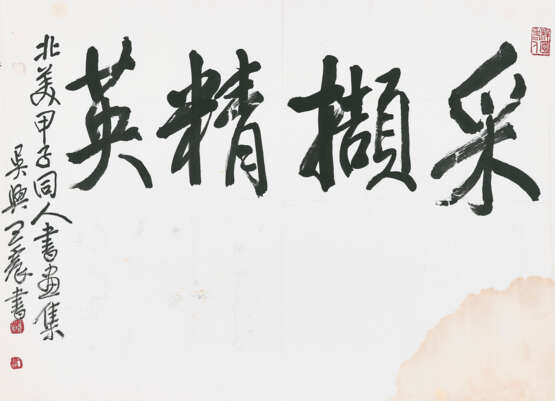 采擷精英
北美甲子同人書畫集
吳興王農書